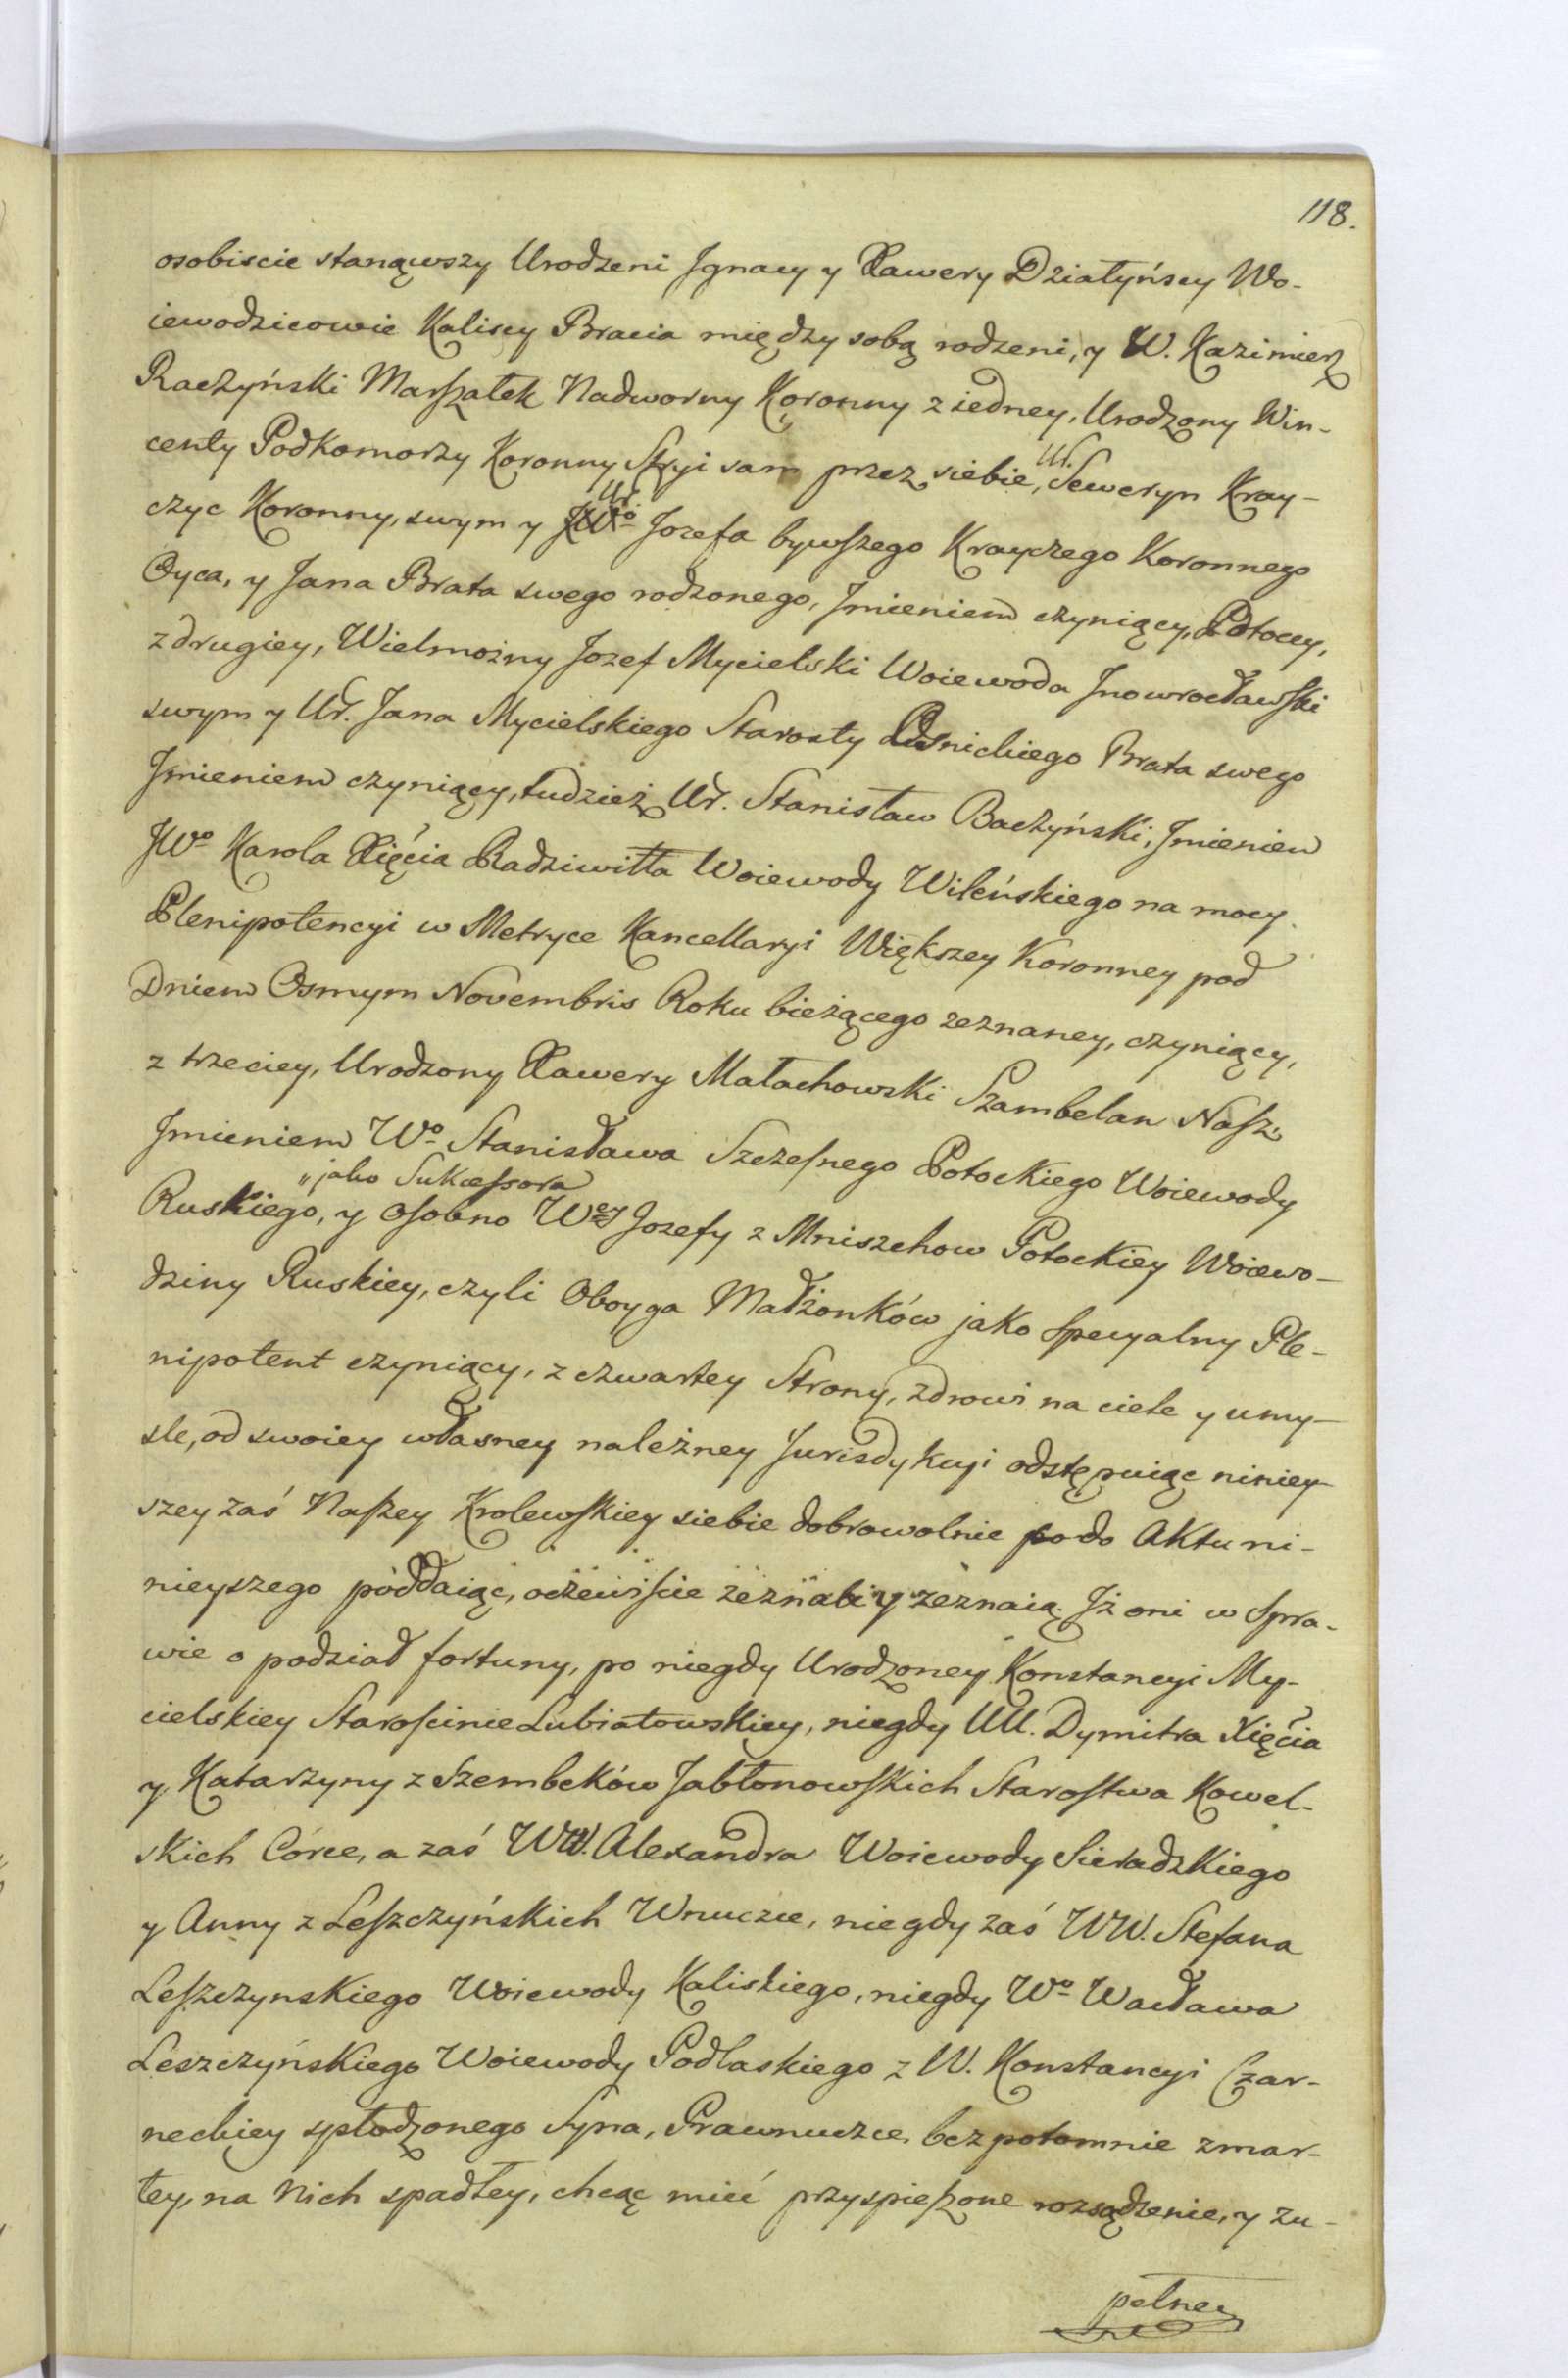 118.
osobiscie stanąwszy Urodzeni Jgnacy y Xawery Działyńscy Wo-
iewodzicowie Kaliscy Bracia między sobą rodzeni, y W. Kazimierz
Raczyński Marszałek Nadworny Koronny z iedney, Urodzony Win-
centy Podkomorzy Koronny Stryi sam przez siebie, Ur. Seweryn Kray-
czyc Koronny, swym y Ur. Jozefa bywszego Krayczego Koronnego
Oyca, y Jana Brata swego rodzonego, Jmieniem czyniący, Potoccy,
z drugiey, Wielmożny Jozef Mycielski Woiewoda Jnowrocławski
swym y Ur. Jana Mycielskiego Starosty Osnickiego Brata swego
Jmieniem czyniący, tudzież Ur. Stanisław Baczyński, Jmieniem
JWo Karola Xięcia Radziwiłła Woiewody Wileńskiego na mocy
Plenipotencyi w Metryce Kancellaryi Większey Koronney pod
Dniem Osmym Novembris Roku bieżącego zeznaney, czyniący,
z trzeciey, Urodzony Xawery Małachowski Szambelan Nasz,
Jmieniem Wo Stanisława Szczesnego Potockiego Woiewody
"jako Sukcessora
Ruskiego, y osobno Wey Jozefy z Mniszchow Potockiey Woiewo-
dziny Ruskiey, czyli Oboyga Małżonków jako specyalny Ple-
nipotent czyniący, z czwartey Strony, zdrowi na ciele y umy-
sle, od swoiey własney należney Jurisdykcyi odstępuiąc niniey-
szey zaś Naszey Krolewskiey siebie dobrowolnie podo Aktu ni-
nieyszego poddaiąc, oczewiscie zeznali y zeznaią. Jż oni w spra-
wie o podział fortuny, po niegdy Urodzoney Konstancyi My-
cielskiey Starościnie Lubiatowskiey, niegdy UU. Dymitra Xięcia
y Katarzyny z Szembeków Jabłonowskich Starostwa Kowel-
skich Córce, a zaś WW. Alexandra Woiewody Sieradzkiego
y Anny z Leszczyńskich Wnuczce, niegdy zaś WW. Stefana
Leszczynskiego Woiewody Kaliskiego, niegdy Wo Wacława
Leszczyńskiego Woiewody Podlaskiego z W. Konstancyi Czar-
neckiey spłodzonego Syna, Prawnuczce, bezpotomnie zmar-
łey, na Nich spadłey, chcąc mieć przyspieszone rozsądzenie, y zu-
pełney